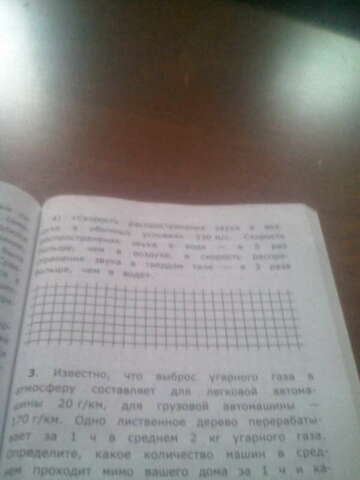 4) «Скорость распространения звука в воз-
духе в обычных условиях 330 м/с. Скорость
распространения звука в воде — в 5 раз
больше, чем в воздухе, а скорость распро-
странения звука в твердом теле — в 3 раза
больше, чем в воде».
3. Известно, что выброс угарного газа в
атмосферу составляет для легковой автома-
шины 20 г/км, для грузовой автомашины —
170 г/км. Одно лиственное дерево перерабаты-
вает за 1 ч в среднем 2 кг угарного газа.
Определите, какое количество машин в сред-
нем проходит мимо вашего дома за 1 ч и ка-